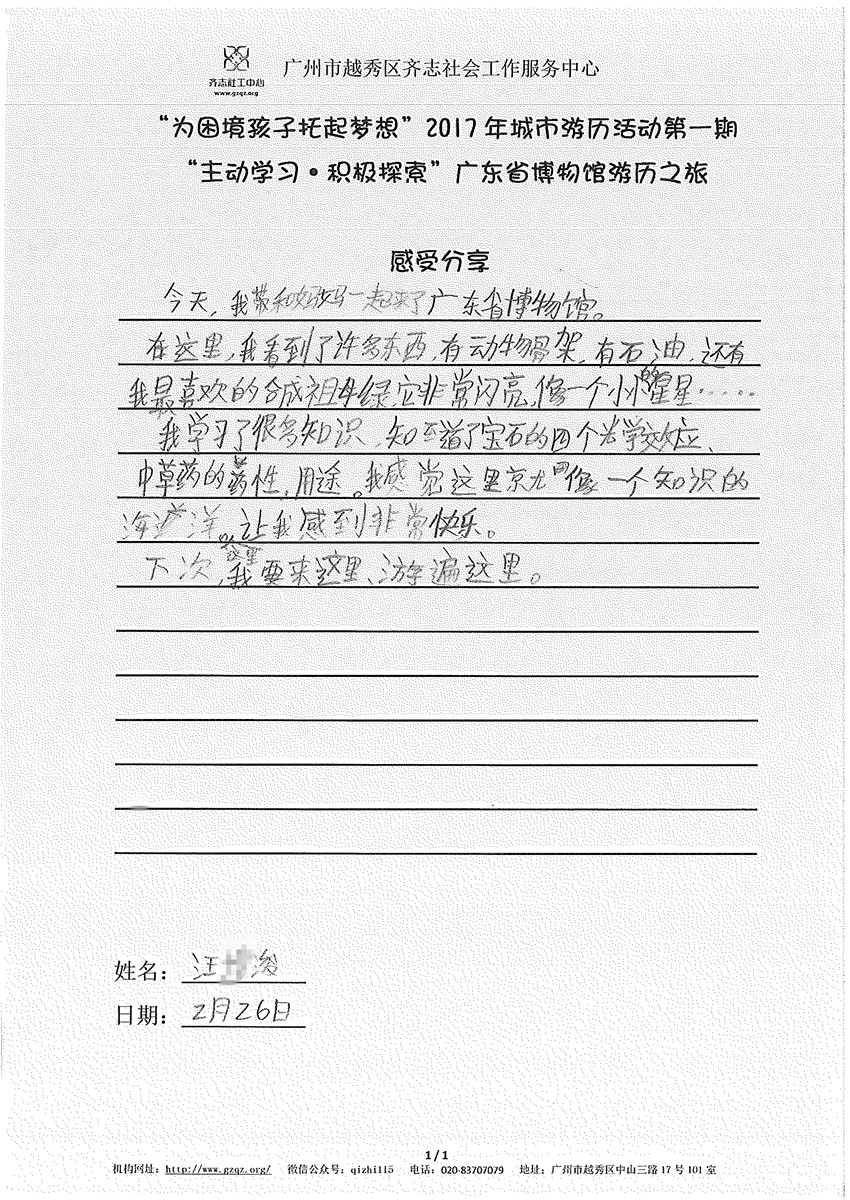 齐志社工中心
www.gzqz.org
广州市越秀区齐志社会工作服务中心
“为困境孩子托起梦想”2017年城市游历活动第一期
“主动学习·积极探索”广东省博物馆游历之旅
感受分享
今天,我带和妈妈一起来了广东省博物馆。
在这里,我看到了许多东西,有动物骨架,有石油,还有
我最喜欢的合成祖母绿,它非常闪亮,像一个小小的星星……
我学习了很多知识,知道了宝石的四个光学效应、
中草药的药性,用途。我感觉这里就像一个知识的
海洋,让我感到非常快乐。
下次,我要来这里、游遍这里。
姓名:汪 浚
日期:2月26日
1/1
机构网址:http://www.gzqz.org/ 微信公众号:qizhi115 电话:020-83707079 地址:广州市越秀区中山三路17号101室